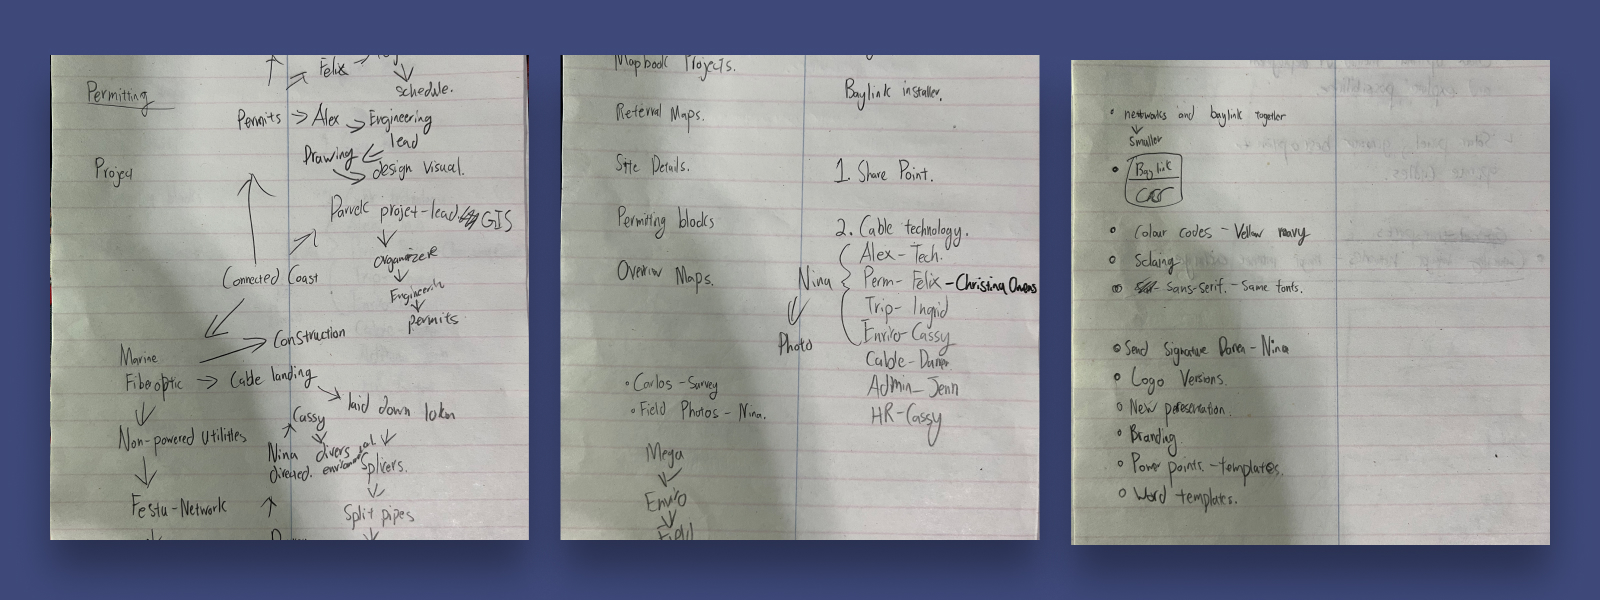 Felix
schedule.
Permitting
Permits → Alex → Engineering
lead
Drawing
design visual.
Project
Parvelc projet-lead GIS
Organizere
Connected Coast
Engineerin
permits
Construction
Marine
Fiberoptic → Cable landing
laid down
Cassy
Non-powered Utilities
Nina divers
directed.
Splivers.
Festu-Network
Split pipes
Mapbook Projects.
Referval Maps.
Site Details.
Permitting blocks
Overviw Maps.
• Carlos - Survey
• Field Photos - Nina.
Mega
Enviro
Field
Baylink installer.
1. Share Point.
2. Cable technology.
Alex - Tech.
Nina
Perm - Felix - Christina Owens
Trip - Ingrid
Enviro - Cassy
Photo
Cable - Darren
Admin - Jenn
HR - Cassy
• nettworks and baylink together
Smaller
• Baylink
• Colour codes - Yellow navy
• Sclaing
• Sans-serif. - Same fonts.
• Send Signature Daren - Nina
• Logo Versions.
• New peresentation.
• Branding
• Power points. - templates.
• Word templates.